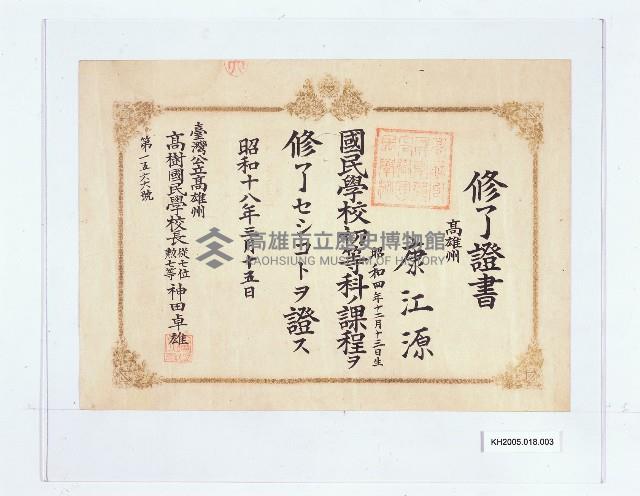 修了證書
高雄州
康江源
昭和四年十二月十三日生
國民學校初等科ノ課程ヲ
修了セシコトヲ證ス
昭和十八年三月十五日
臺灣公立高雄州
高樹國民學校長 從七位 勲七等 神田卓雄
第一五六六號
高雄市立歷史博物館
KAOHSIUNG MUSEUM OF HISTORY
KH2005.018.003